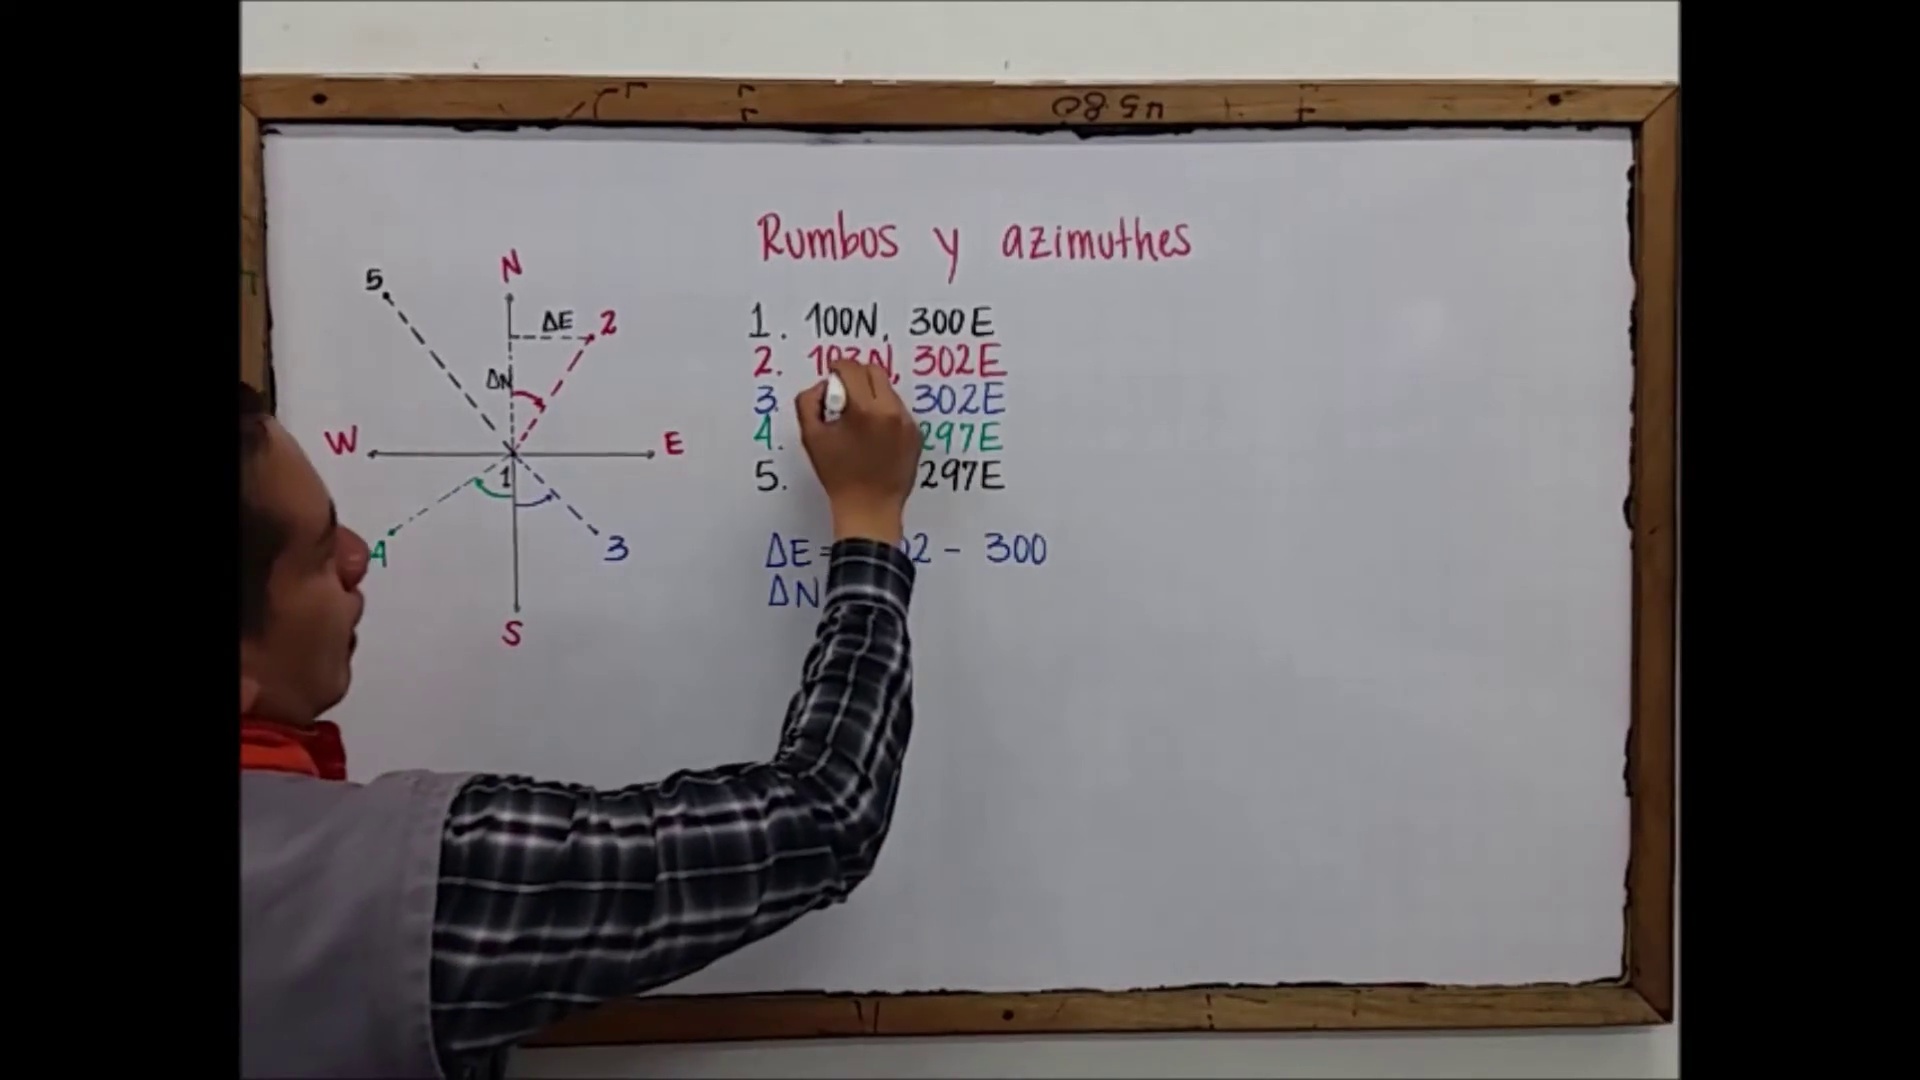 45.80
Rumbos y azimuthes
N
5
ΔE 2
ΔN
W E
1
4 3
S
1. 100N, 300E
2. 103N, 302E
3. 302E
4. 297E
5. 297E
ΔE = 2 - 300
ΔN